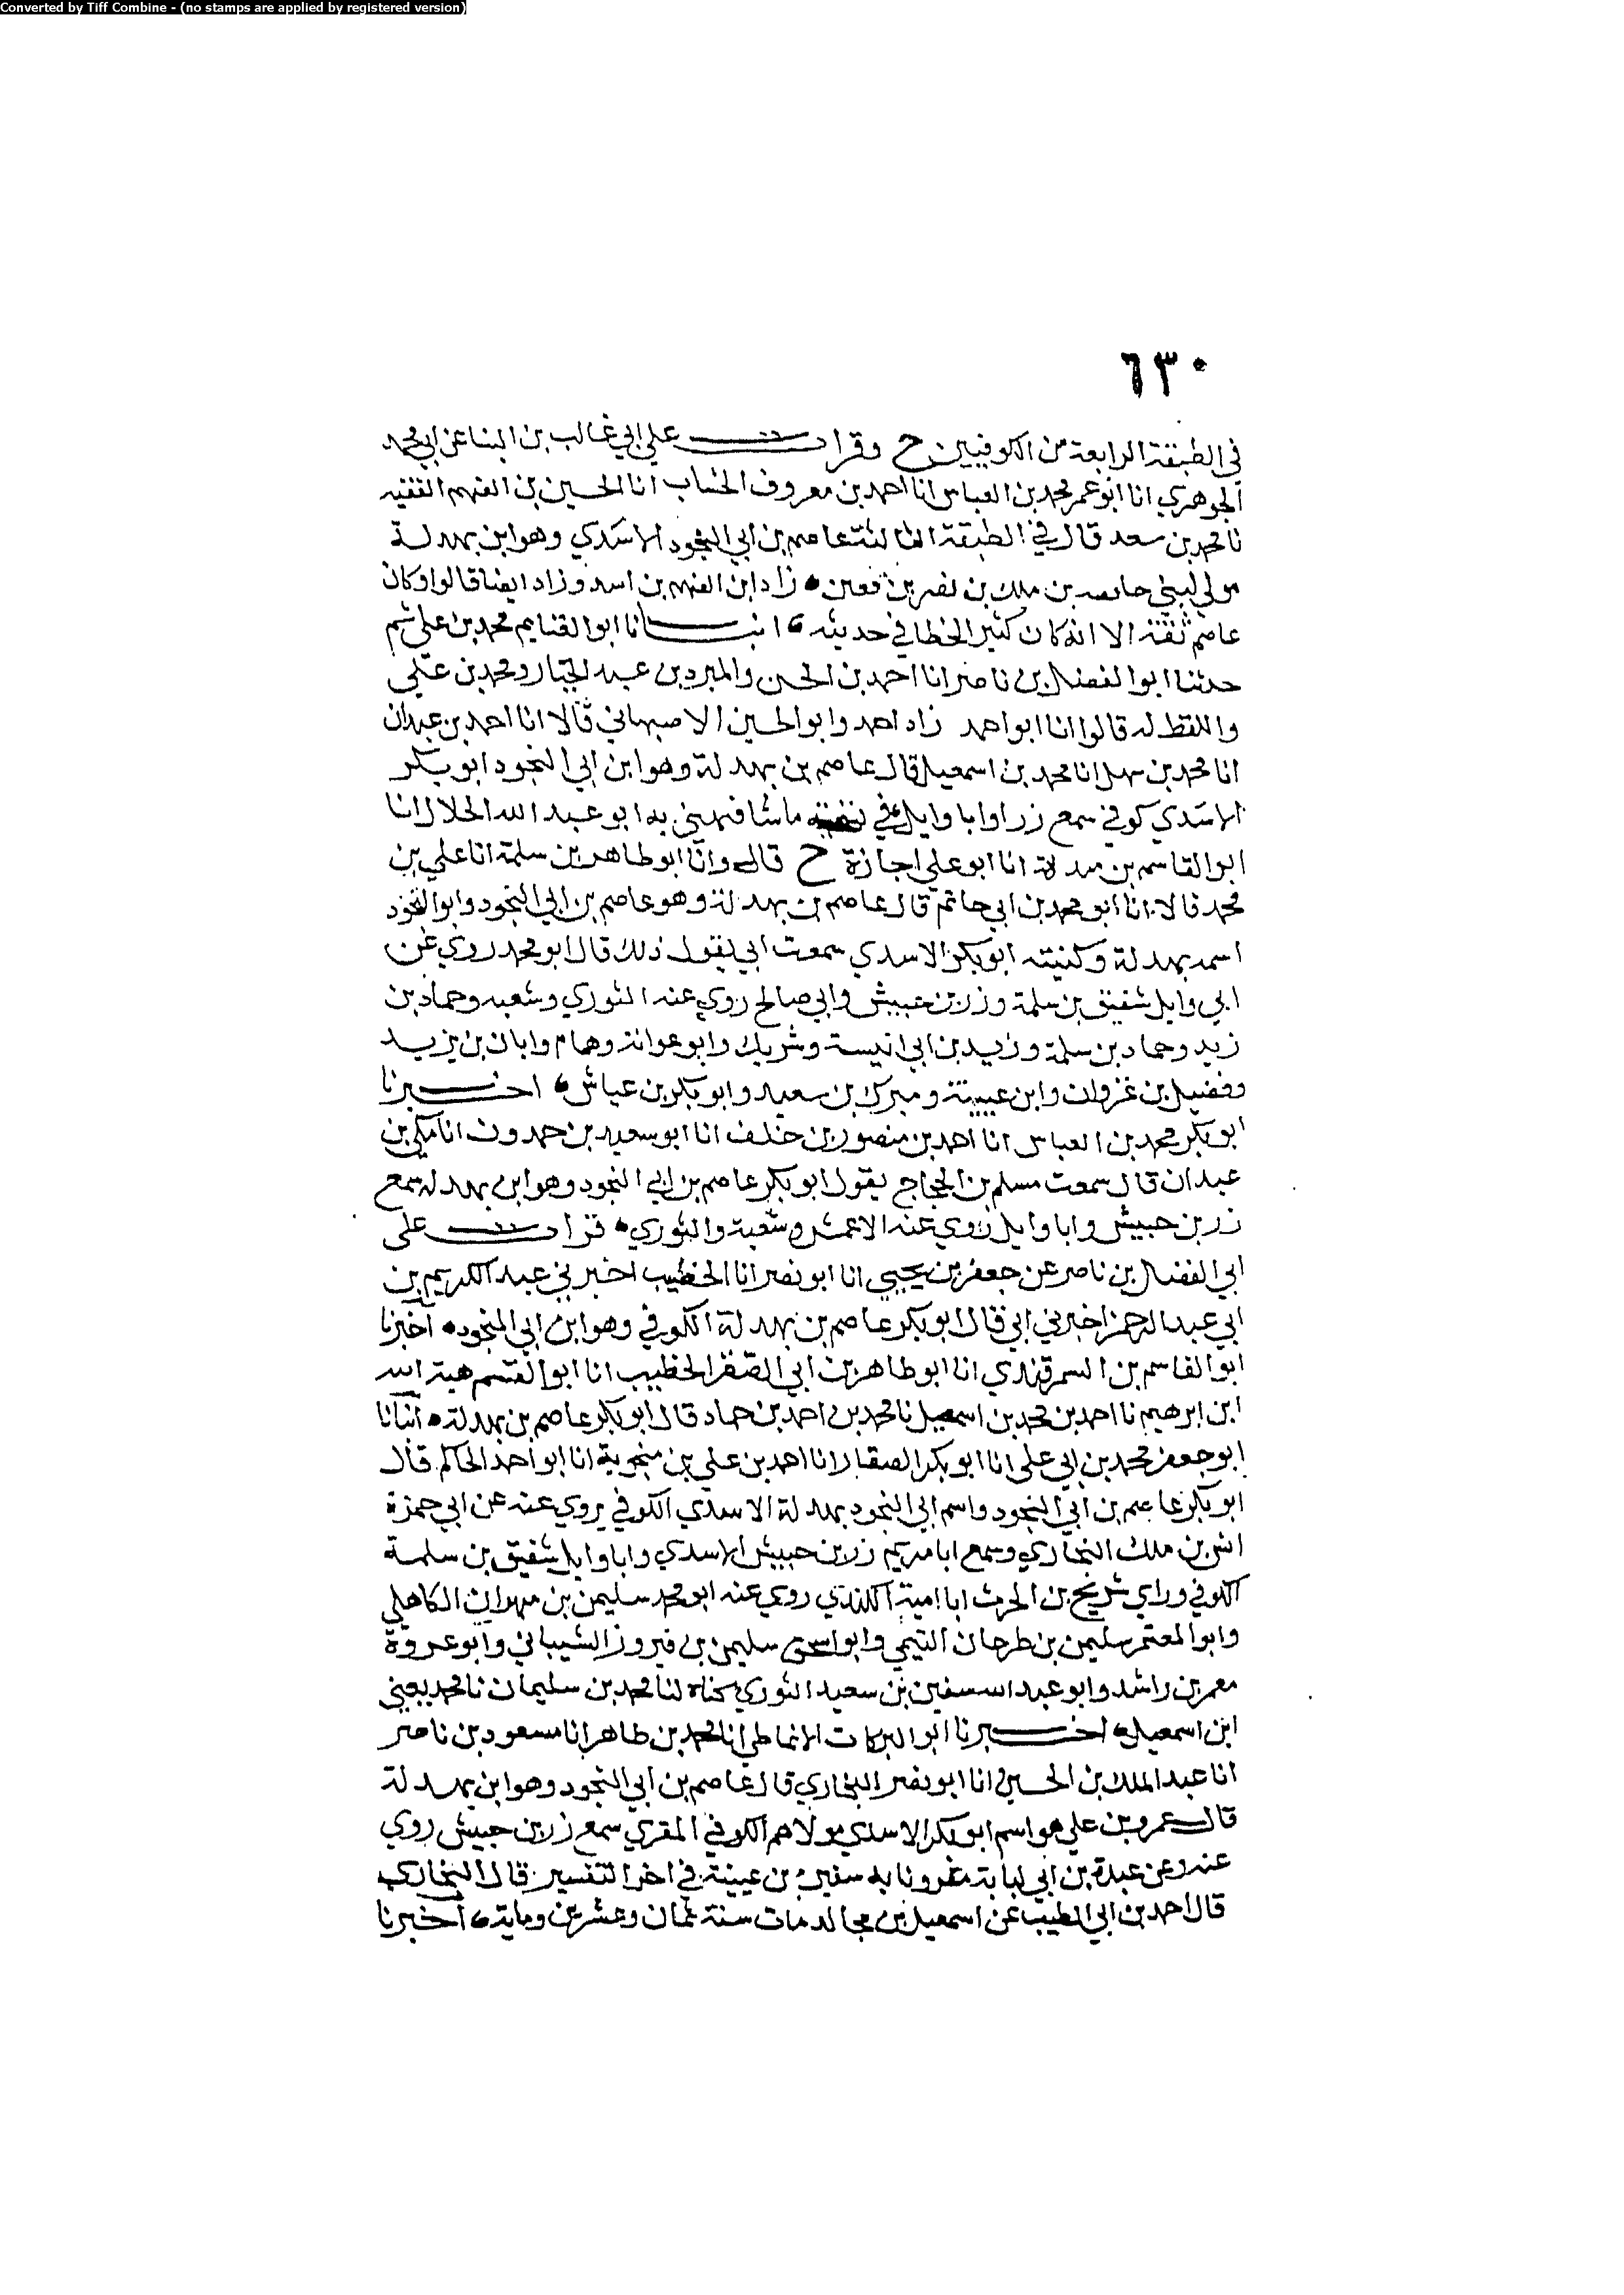 Converted by Tiff Combine - (no stamps are applied by registered version)
٦٣٠
في الطبقة الرابعة من الكوفيين ح وقرات على ابي غالب بن البنا عن ابي محمد
الجوهري انا ابو عمر محمد بن العباس انا احمد بن معروف الخشاب انا الحسين بن الفهم الفقيه
نا محمد بن سعد قال في الطبقة الثالثة عاصم بن ابي النجود الاسدي وهو ابن بهدلة
مولى لبني بن ملك بن نصر بن قعين زاد ابن الفهم بن اسد وزاد ايضا قالوا وكان
عاصم ثقة الا انه كان كثير الخطا في حديثه انبانا ابو الغنايم محمد بن علي ثم
حدثنا ابو الفضل بن ناصر انا احمد بن الحسن والمبرد بن عبد الجبار ومحمد بن علي
واللفظ له قالوا انا ابو احمد زاد احمد وابو الحسين الاصبهاني قالا انا احمد بن عبدان
انا محمد بن سهل انا محمد بن اسمعيل قال عاصم بن بهدلة وهو ابن ابي النجود ابو بكر
الاسدي كوفي سمع زرا وابا وايل في ما شافهني به ابو عبد الله الخلال انا
ابو القاسم بن مندة انا ابو علي اجازة ح قال وانا ابو طاهر بن سلمة انا علي بن
محمد قالا انا ابو محمد بن ابي حاتم قال عاصم بن بهدلة وهو عاصم بن ابي النجود وابو النجود
اسمه بهدلة وكنيته ابو بكر الاسدي سمعت ابي يقول ذلك قال ابو محمد روي عن
ابي وايل شقيق بن سلمة وزر بن حبيش وابي صالح روي عنه الثوري وشعبه وحماد بن
زيد وحماد بن سلمة وزيد بن ابي انيسة وشريك وابو عوانة وهمام وابان بن يزيد
وفضيل بن غزوان وابن عيينة ومبرك بن سعيد وابو بكر بن عياش اخبرنا
ابو بكر محمد بن العباس انا احمد بن منصور بن خلف انا ابو سعيد بن حمدون انا مكي بن
عبدان قال سمعت مسلم بن الحجاج يقول ابو بكر عاصم بن ابي النجود وهو ابن بهدله سمع
زر بن حبيش وابا وايل روي عنه الاعمش وشعبة والثوري قرات على
ابي الفضل بن ناصر عن جعفر بن يحيي انا ابو نصر انا الخطيب اخبرني عبد الكريم بن
ابي عبد الرحمن اخبرني ابي قال ابو بكر عاصم بن بهدلة الكوفي وهو ابن ابي النجود اخبرنا
ابو القاسم بن السمرقندي انا ابو طاهر بن ابي الصقر الخطيب انا ابو القسم هبة الله
ابن ابرهيم نا احمد بن محمد بن اسمعيل نا محمد بن احمد بن حماد قال ابو بكر عاصم بن بهدلة انبانا
ابو جعفر محمد بن ابي علي انا ابو بكر الصفار انا احمد بن علي بن منجوية انا ابو احمد الحاكم قال
ابو بكر عاصم بن ابي النجود واسم ابي النجود بهدلة الاسدي الكوفي يروي عنه عن ابي حمزة
انس بن ملك النجاري وسمع ابا مريم زر بن حبيش الاسدي وابا وايل شقيق بن سلمة
الكوفي وراي شريح بن الحرث ابا امية الكندي روي عنه ابو محمد سليمن بن مهران الكاهلي
وابو المعتمر سليمن بن طرحان التيمي وابو اسحق سليمن بن فيروز الشيباني وابو عروة
معمر بن راشد وابو عبد الله سفين بن سعيد الثوري كناه لنا محمد بن سليمان نا محمد يعني
ابن اسمعيل اخبرنا ابو البركات الانماطي انا محمد بن طاهر انا مسعود بن ناصر
انا عبد الملك بن الحسين انا ابو نصر البخاري قال عاصم بن ابي النجود وهو ابن بهدلة
قال عمرو بن علي هو اسم ابو بكر الاسدي مولاهم الكوفي المقري سمع زر بن حبيش روي
عنه وعن عبدة بن ابي لبابة مقرونا به سفين بن عيينة في اخر التفسير قال البخاري
قال احمد بن ابي الطيب عن اسمعيل بن مجالد مات سنة ثمان وعشرين ومايه اخبرنا